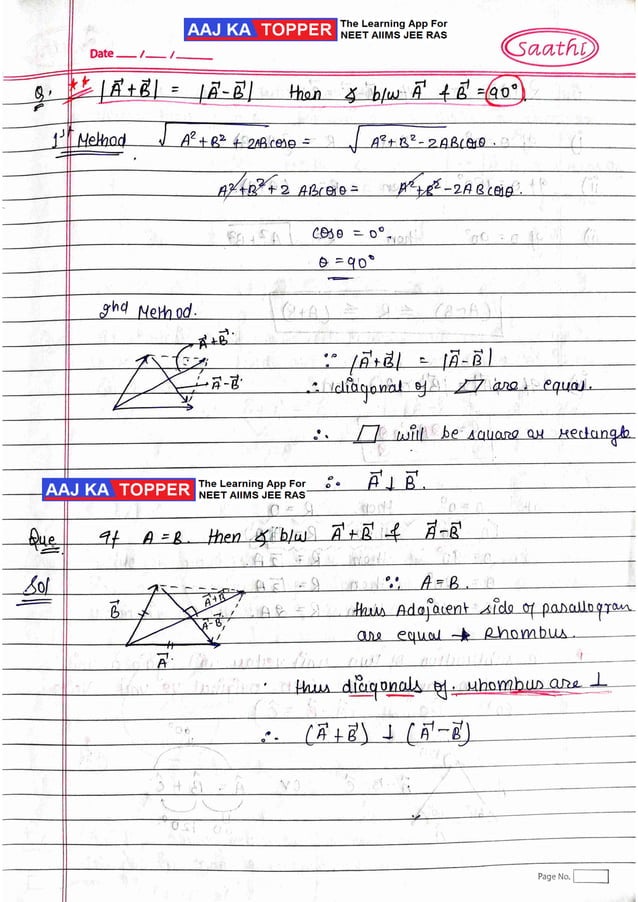 AAJ KA TOPPER The Learning App For
NEET AIIMS JEE RAS
Date ___/___/___
Saathi
Q. ** |A⃗+B⃗| = |A⃗-B⃗| then ∠ b/w A⃗ & B⃗ = 90°.
1st Method √A²+B²+2ABcosθ = √A²+B²-2ABcosθ.
A²+B²+2ABcosθ = A²+B²-2ABcosθ.
cosθ = 0°.
θ = 90°
2nd Method.
A⃗+B⃗
A⃗-B⃗
∵ |A⃗+B⃗| = |A⃗-B⃗|
∴ diagonal of ▱ are equal.
∴ ▱ will be square or rectangle
AAJ KA TOPPER The Learning App For
NEET AIIMS JEE RAS
∴ A⃗ ⊥ B⃗.
Que. If A = B. then ∠ b/w A⃗+B⃗ & A⃗-B⃗
Sol
B⃗
A⃗+B⃗
A⃗-B⃗
A⃗
∵ A = B.
thus Adajacent side of parallogram
are equal → Rhombus.
thus diagonals of rhombus are ⊥
∴ (A⃗+B⃗) ⊥ (A⃗-B⃗)
Page No.